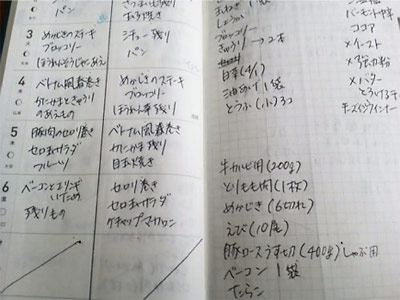 パン
さつまいも残り
お好焼き
3
めかじきのステーキ
ブロッコリー
ほうれんそうじゃこあえ
シチュー残り
パン
4
ベトナム風春巻き
カニかまときゅうり
のあえもの
めかじきのステーキ
ブロッコリー
ほうれん草残り
5
豚肉のセロリ巻き
セロリサラダ
フルーツ
ベトナム風春巻き
カニかま残り
目玉焼き
6
ベーコンとエリンギ
いため
残りもの
セロリ巻き
セロリサラダ
ケチャップマカロニ
7
しょうが
ブロッコリー
きゅうり → 2本
白菜 (1/4)
油あげ 1袋
とうふ (小) 3コ
牛カルビ用 (200g)
とりもも肉 (1枚)
めかじき (6切れ)
えび (10尾)
豚ロースうす切 (400g) しゃぶ用
ベーコン 1袋
たらこ
バーモントカレー
ココア
×イースト
×強力粉
×バター
とろけるチーズ
ウインナー